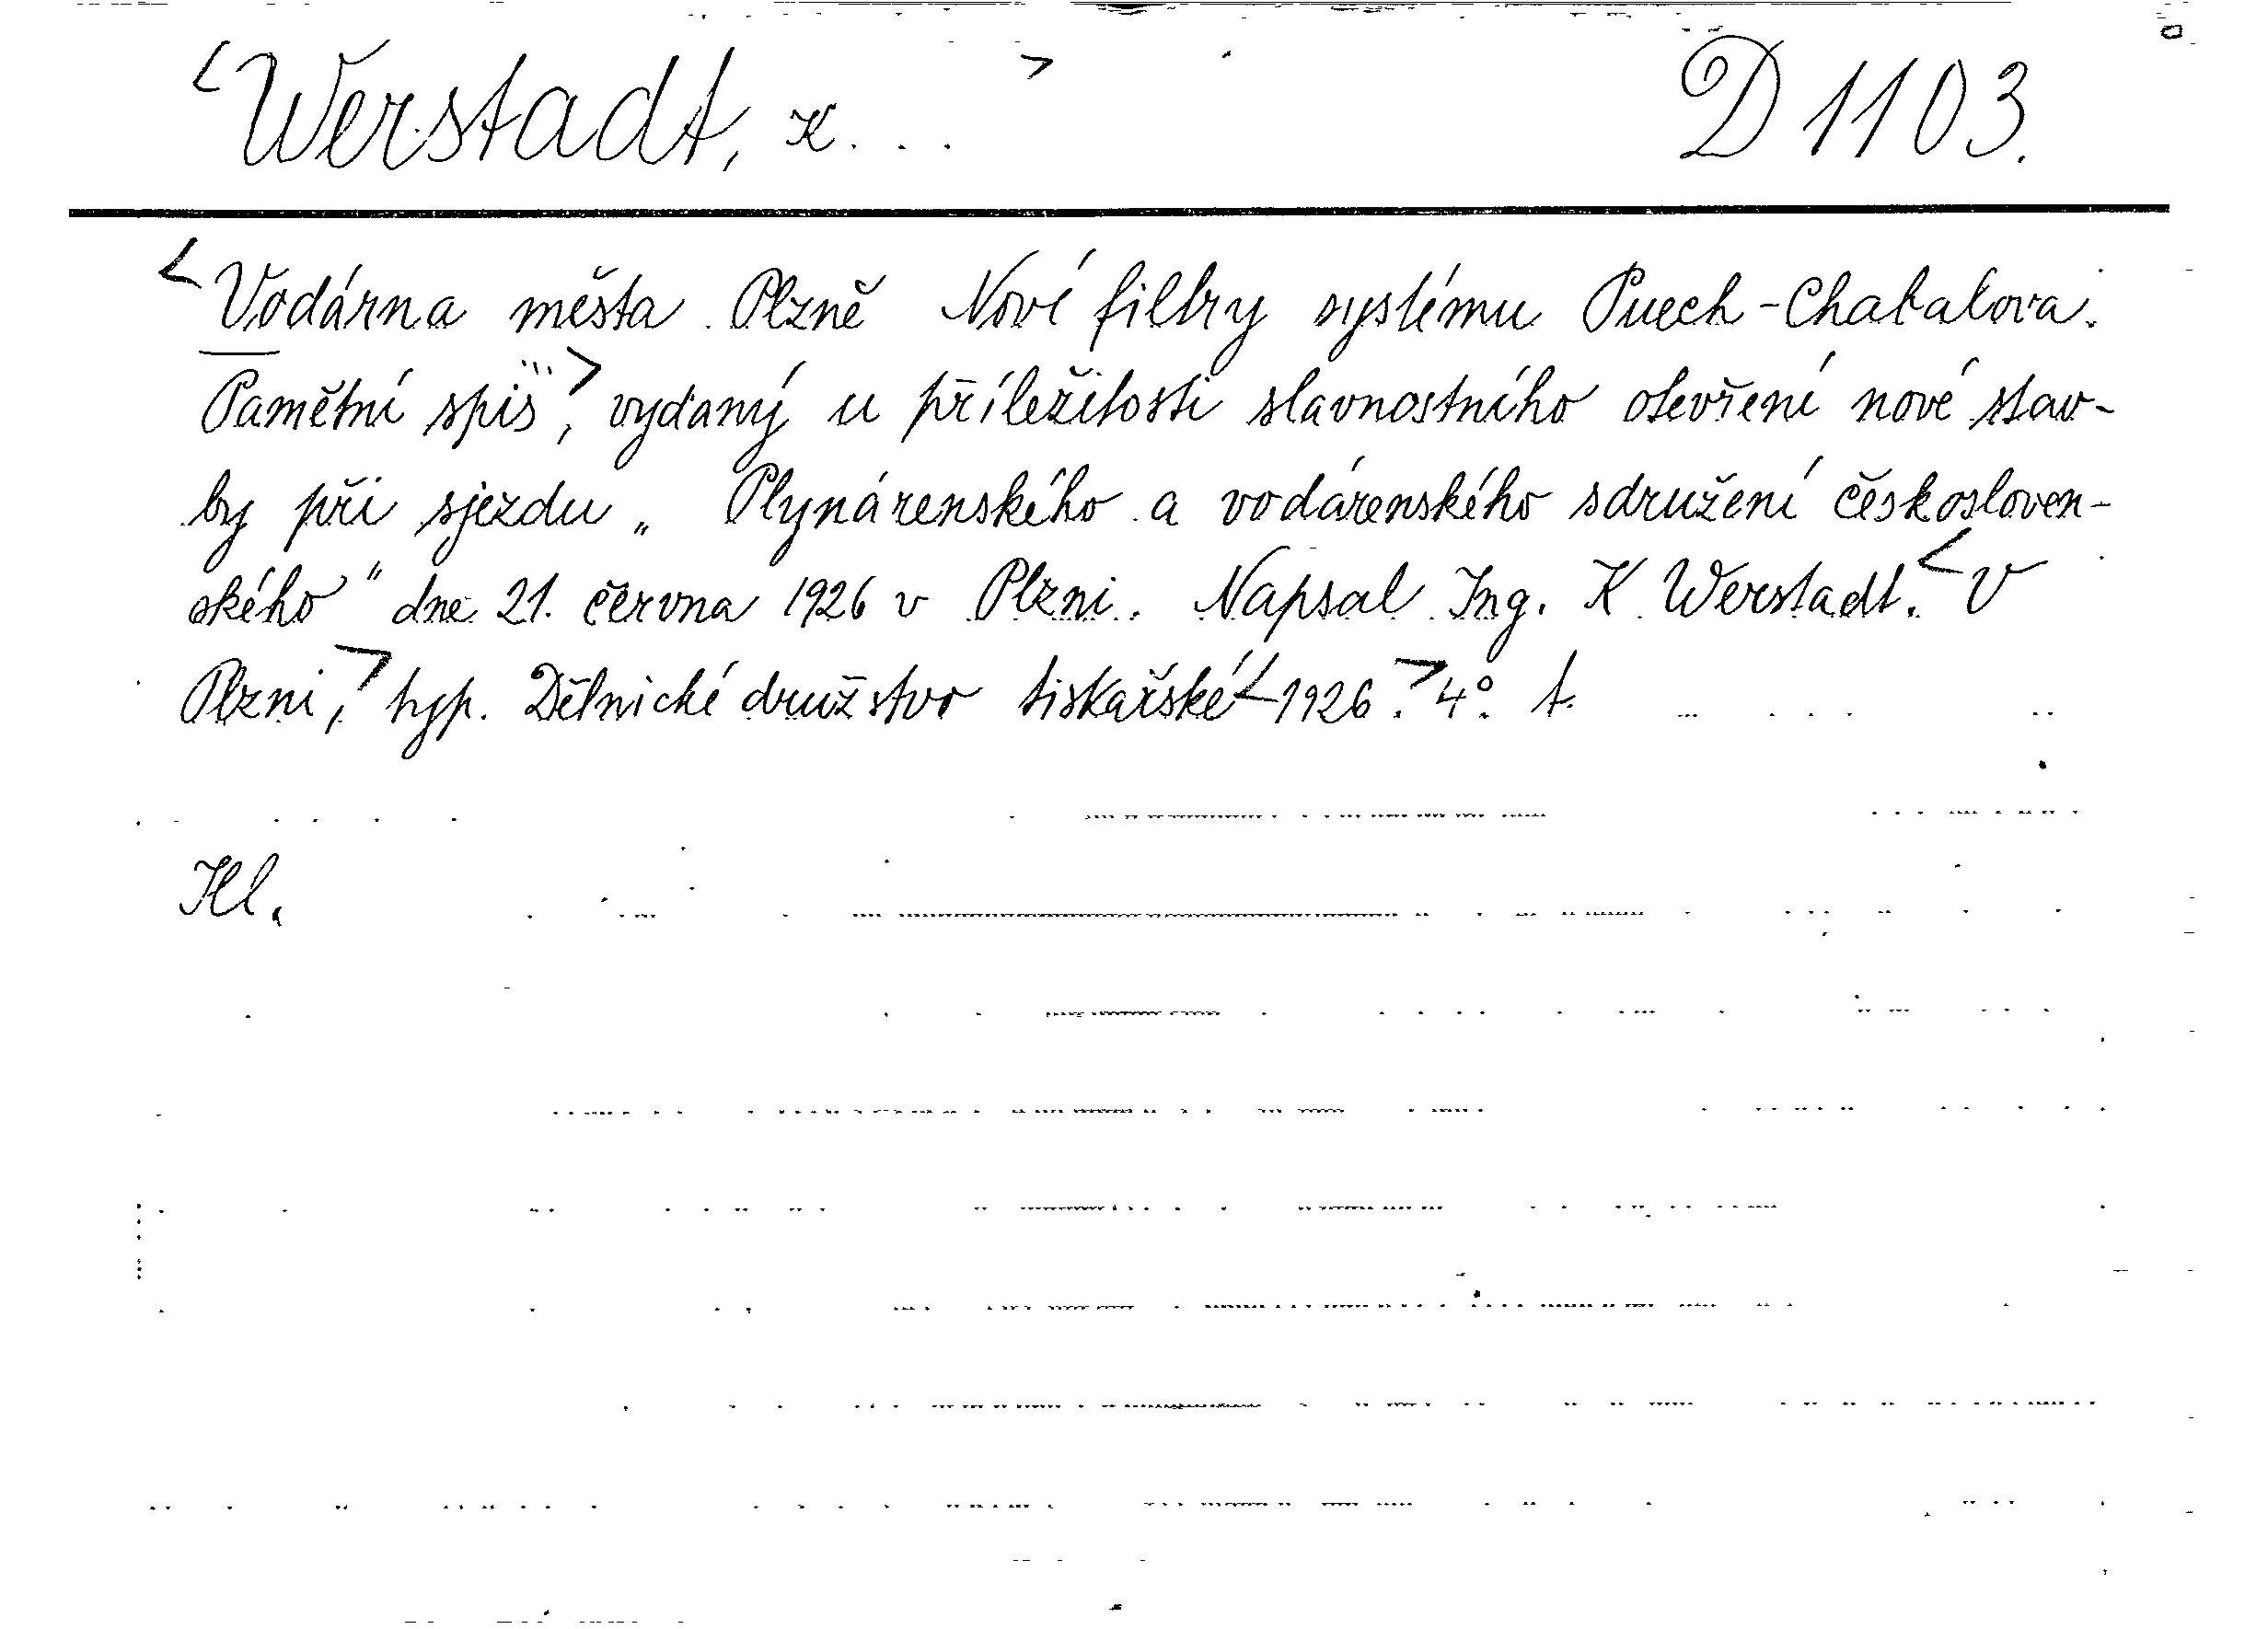 <Werstadt, K...> D 1103.
<Vodárna města Plzně Nové filtry systému Puech-Chabalova.
Pamětní spis"'>, vydaný u příležitosti slavnostního otevření nové stav-
by při sjezdu „Plynárenského a vodárenského sdružení českosloven-
ského" dne 21. června 1926 v Plzni. Napsal Ing. K Werstadt. <V
Plzni,> typ. Dělnické družstvo tiskařské <1926.> 4°. t.
Kl.